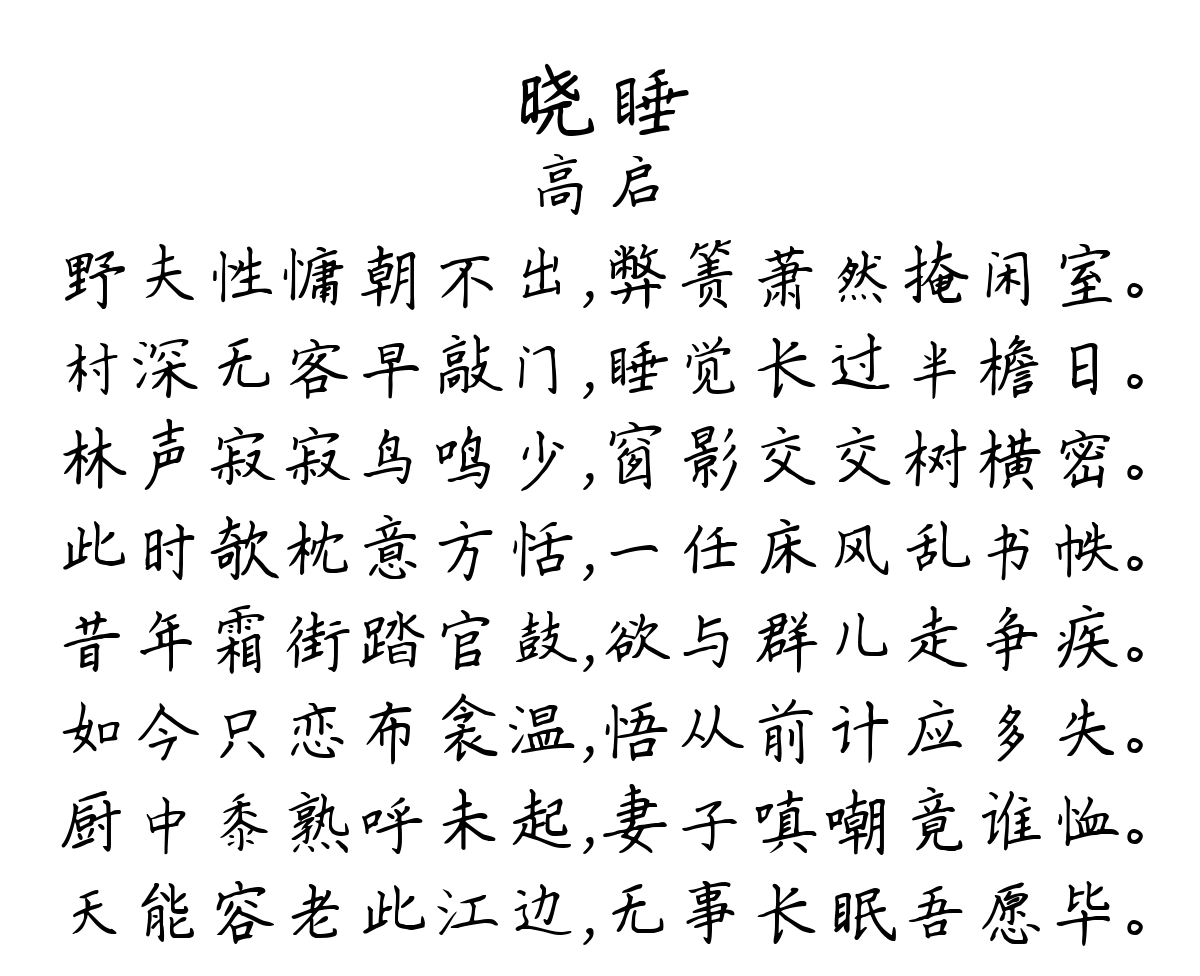 晓睡
高启
野夫性慵朝不出,弊箦萧然掩闲室。
村深无客早敲门,睡觉长过半檐日。
林声寂寂鸟鸣少,窗影交交树横密。
此时欹枕意方恬,一任床风乱书帙。
昔年霜街踏官鼓,欲与群儿走争疾。
如今只恋布衾温,悟从前计应多失。
厨中黍熟呼未起,妻子嗔嘲竟谁恤。
天能容老此江边,无事长眠吾愿毕。